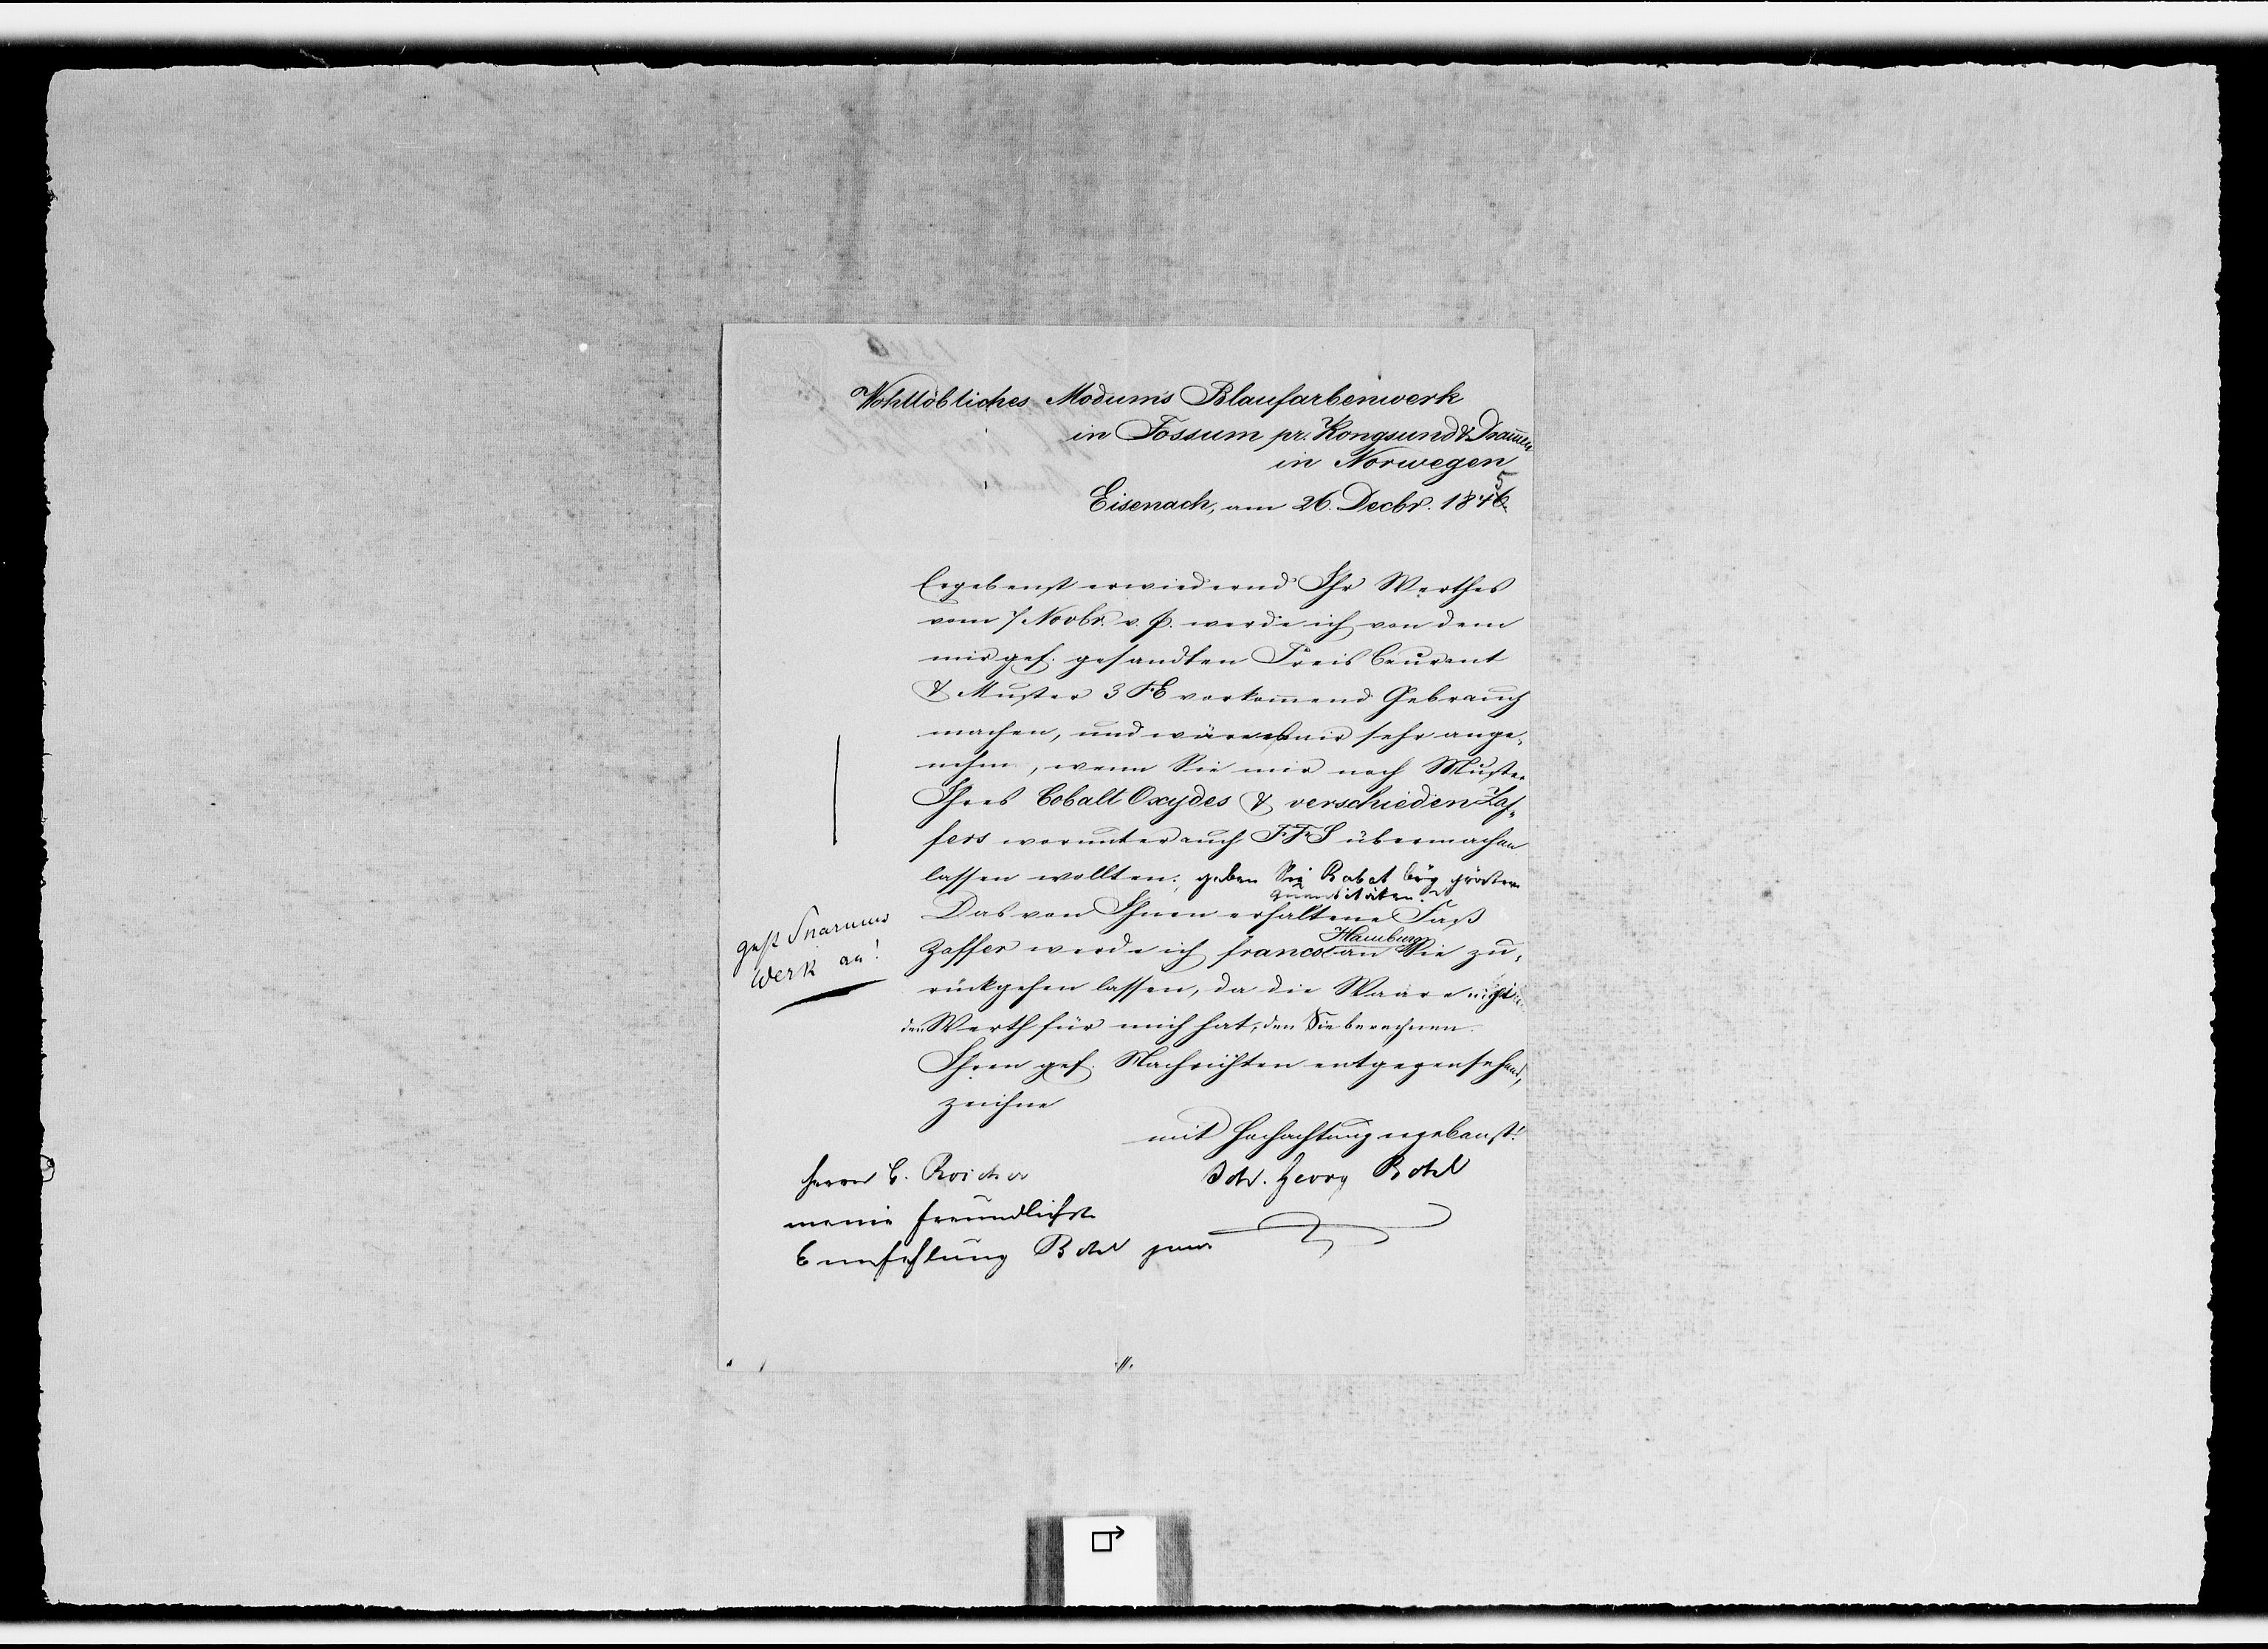 Wohllöbliches Modums Blaufarbenwerk
in Fossum pr. Kongsund & Dram̄en
in Norwegen
5
Eisenach, am 26. Decbr. 1846.
Ergebenst erwiedernd Ihr Werthes
vom 7 Novbr. v. J. werde ich von dem
mir gef. gesandten Preis Courant
& Muster 3 FE vorkom̄end Gebrauch
machen, und wäre es mir sehr ange-
nehm, wenn Sie mir noch Muster
Ihres Cobalt Oxydes & verschieden Zaf-
fers worunter auch FFS übermachen
lassen wollten; geben Sie Rabat bey größern
Quantitäten?
Das von Ihnen erhaltene Faß
Hamburg
Zaffer werde ich franco an Sie zu-
rückgehen lassen, da die Waare nicht
den Werth für mich hat, den Sie berechnen.
geht Snarums
Werk an!
Ihren gef. Nachrichten entgegensehend,
zeichne
mit Hochachtung ergebenst!
Joh. Georg Bohl
Herrn C.
meine freundlichste
Empfehlung Bohl